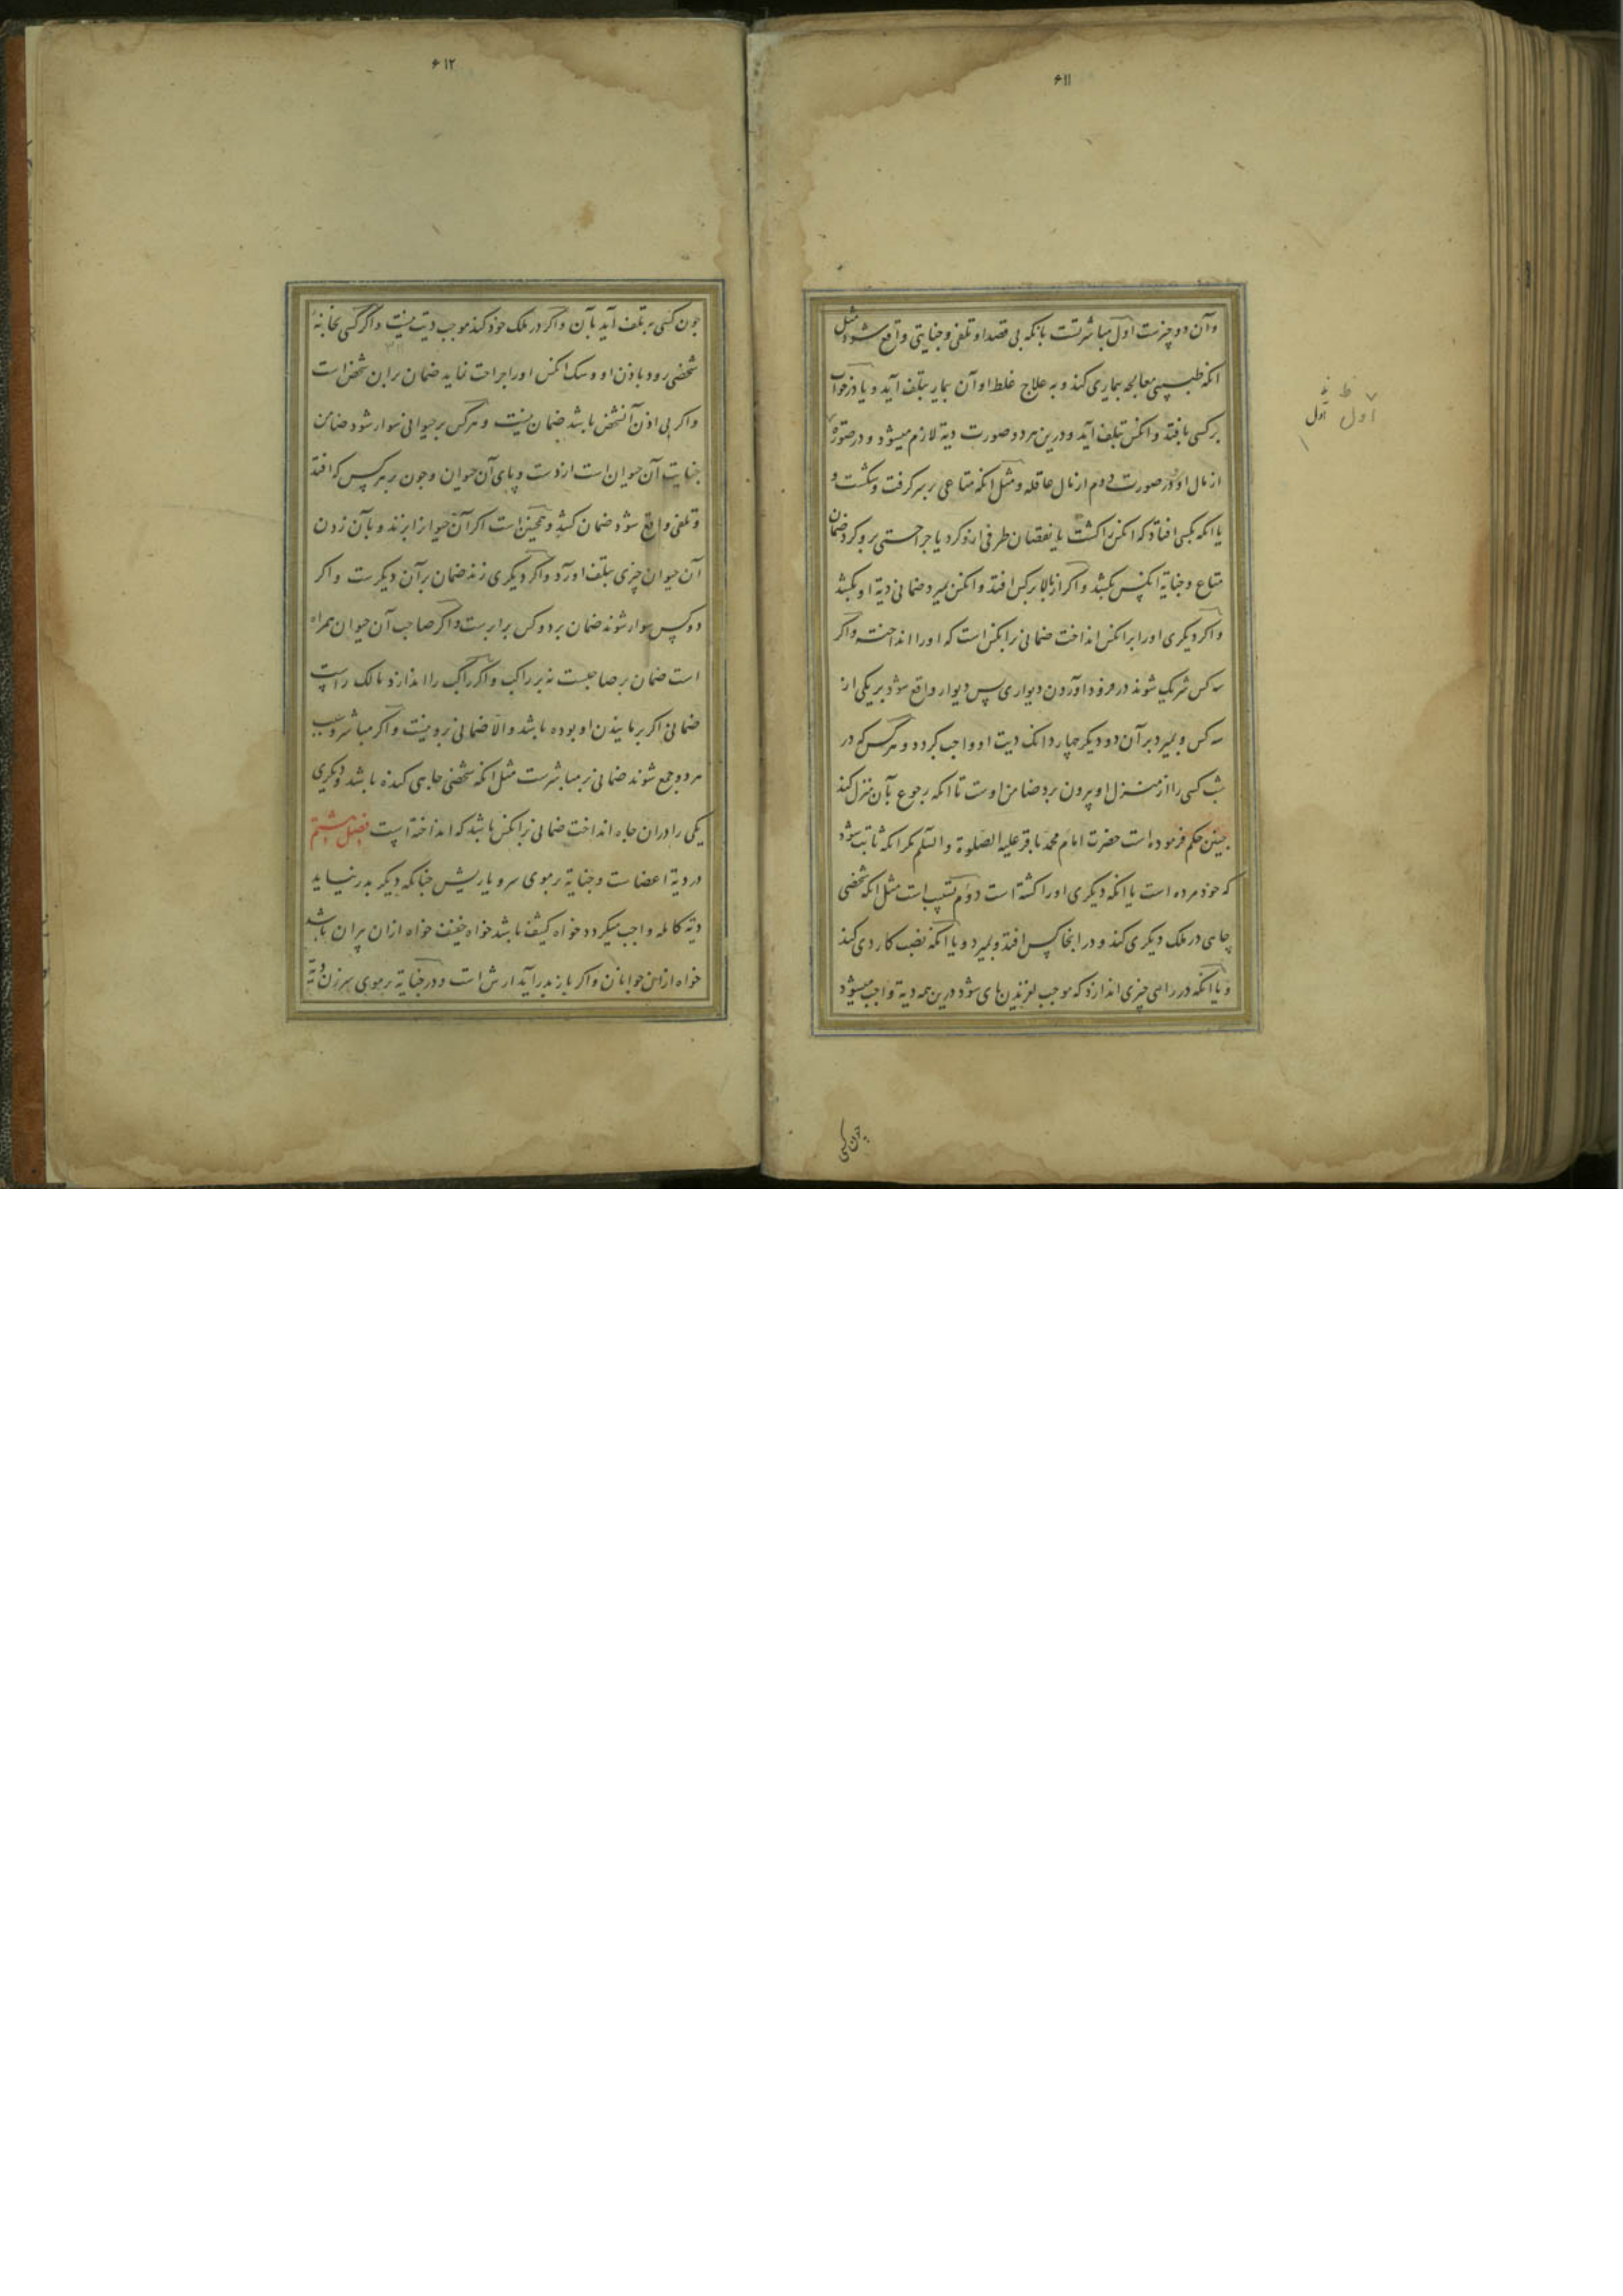 ۶۱۱
وآن دو چیزست اول مباشرتست بانکه بی قصد او تلفی و جنایتی واقع شود مثل
انکه طبیبی معالجه بیماری کند و به علاج غلط او آن بیمار بتلف آید و یا در خواب
بر کسی بافتد و انکس بتلف آید و درین هر دو صورت دیة لازم میشود و در صورة
از مال او و در صورت دوم از مال عاقله و مثل انکه متاعی بر سر کرفت و بشکست و
یا انکه بکسی افتاد که انکس را کشت یا نقصان طرفی ازو کرد یا جراحتی برو کرد ضمان
متاع و جنایة انکس بکشد و اکر از بالا بر کس افتد و انکس بمیرد ضمانی دیة او بکشد
و اکر دیکری او را بر انکس انداخت ضمانی بر انکس است که او را انداخته و اکر
سه کس شریک شوند در فرود آوردن دیواری پس دیوار واقع شود بر یکی از
سه کس و بمیرد بر آن دو دیکر چهار دانک دیت او واجب کردد و هر کس که در
شب کسی را از منزل او بیرون برد ضامن اوست تا انکه رجوع بآن منزل کند
چنین حکم فرموده است حضرت امام محمد باقر علیه الصلوة والسلم مکر انکه ثابت شود
که خود مرده است یا انکه دیکری او را کشته است دوم تسبیب است مثل انکه شخصی
چاهی در ملک دیکری کند و در انجا کس افتد و بمیرد و یا انکه نصب کاردی کند
و یا انکه در راهی چیزی اندازد که موجب لغزیدن پای شود درین همه دیة واجب میشود
چون کسی
اول
اول
۶۱۲
چون کسی بتلف آید بآن و اکر در ملک خود کند موجب دیت نیست و اکر کسی بخانه
شخصی رود باذن او و سک انکس او را جراحت نماید ضمان بر ان شخص است
و اکر بی اذن آنشخص باشد ضمان نیست و هر کس بر حیوانی سوار شود ضامن
جنایت آن حیوان است از دست و پای آن حیوان و چون بر هر کس که افتد
و تلفی واقع شود ضمان کشد و همچنین است اکر آن حیوانرا بزند و بآن زدن
آن حیوان چیزی بتلف اورد و اکر دیکری زند ضمان بر آن دیکرست و اکر
دو کس سوار شوند ضمان بر دو کس برابرست و اکر صاحب آن حیوان همراه
است ضمان بر صاحبست نه بر راکب و اکر راکب را اندازد مالک راست
ضمانی اکر برمانیدن او بوده باشد والا ضمانی برو نیست و اکر مباشر و سبب
هر دو جمع شوند ضمانی بر مباشرست مثل انکه شخصی چاهی کنده باشد و دیکری
یکی را در ان چاه انداخت ضمانی بر انکس باشد که انداخته است فصل هشتم
در دیة اعضاست و جنایة بر موی سر و یا ریش چنانکه دیکر بدر نیاید
دیة کامله واجب میکردد خواه کثیف باشد خواه خفیف خواه ازان پیران باشد
خواه ازان جوانان و اکر باز بدر آید ارش است و در جنایة بر موی سر زن دیة